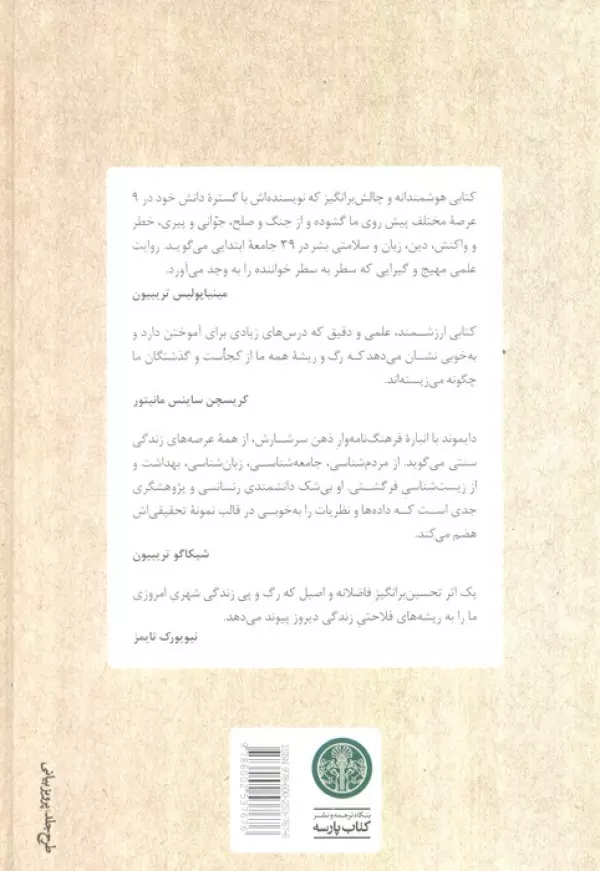 کتابی هوشمندانه و چالش‌برانگیز که نویسنده‌اش با گسترهٔ دانش خود در ۹
عرصهٔ مختلف پیش روی ما گشوده و از جنگ و صلح، جوّانی و پیری، خطر
و واکنش، دین، زبان و سلامتی بشر در ۳۹ جامعهٔ ابتدایی می‌گویـد. روایت
علمی مهیج و گیرایی که سطر به سطر خواننده را به وجد می‌آورد.
مینیاپولیس تریبیون
کتابی ارزشمند، علمی و دقیق که درس‌های زیادی برای آموختن دارد و
به‌خوبی نشـان می‌دهد کـه رگ و ریشهٔ همه ما از کجاست و گذشتگان ما
چگونه می‌زیسته‌اند.
کریسچن ساینس مانیتور
دایموند با انبارهٔ فرهنگ‌نامه‌وارِ ذهن سرشارش، از همهٔ عرصه‌های زندگی
سنتی می‌گوید. از مردم‌شناسی، جامعه‌شناسـی، زبان‌شناسی، بهداشت و
از زیست‌شناسی فرگشتی. او بی‌شک دانشمندی رنسانسی و پژوهشگری
جدی است کـه داده‌ها و نظریات را به‌خوبـی در قالب نمونهٔ تحقیقی‌اش
هضم می‌کند.
شیکاگو تریبیون
یک اثر تحسین‌برانگیز فاضلانه و اصیل که رگ و پی زندگی شهریِ امروزی
ما را به ریشه‌های فلاحتیِ زندگی دیروز پیوند می‌دهد.
نیویورک تایمز
بنگاه ترجمه و نشر
کتاب پارسه
ISBN 978-600-253-767-6
9786002537676
طرح جلد: پرویز بیانی